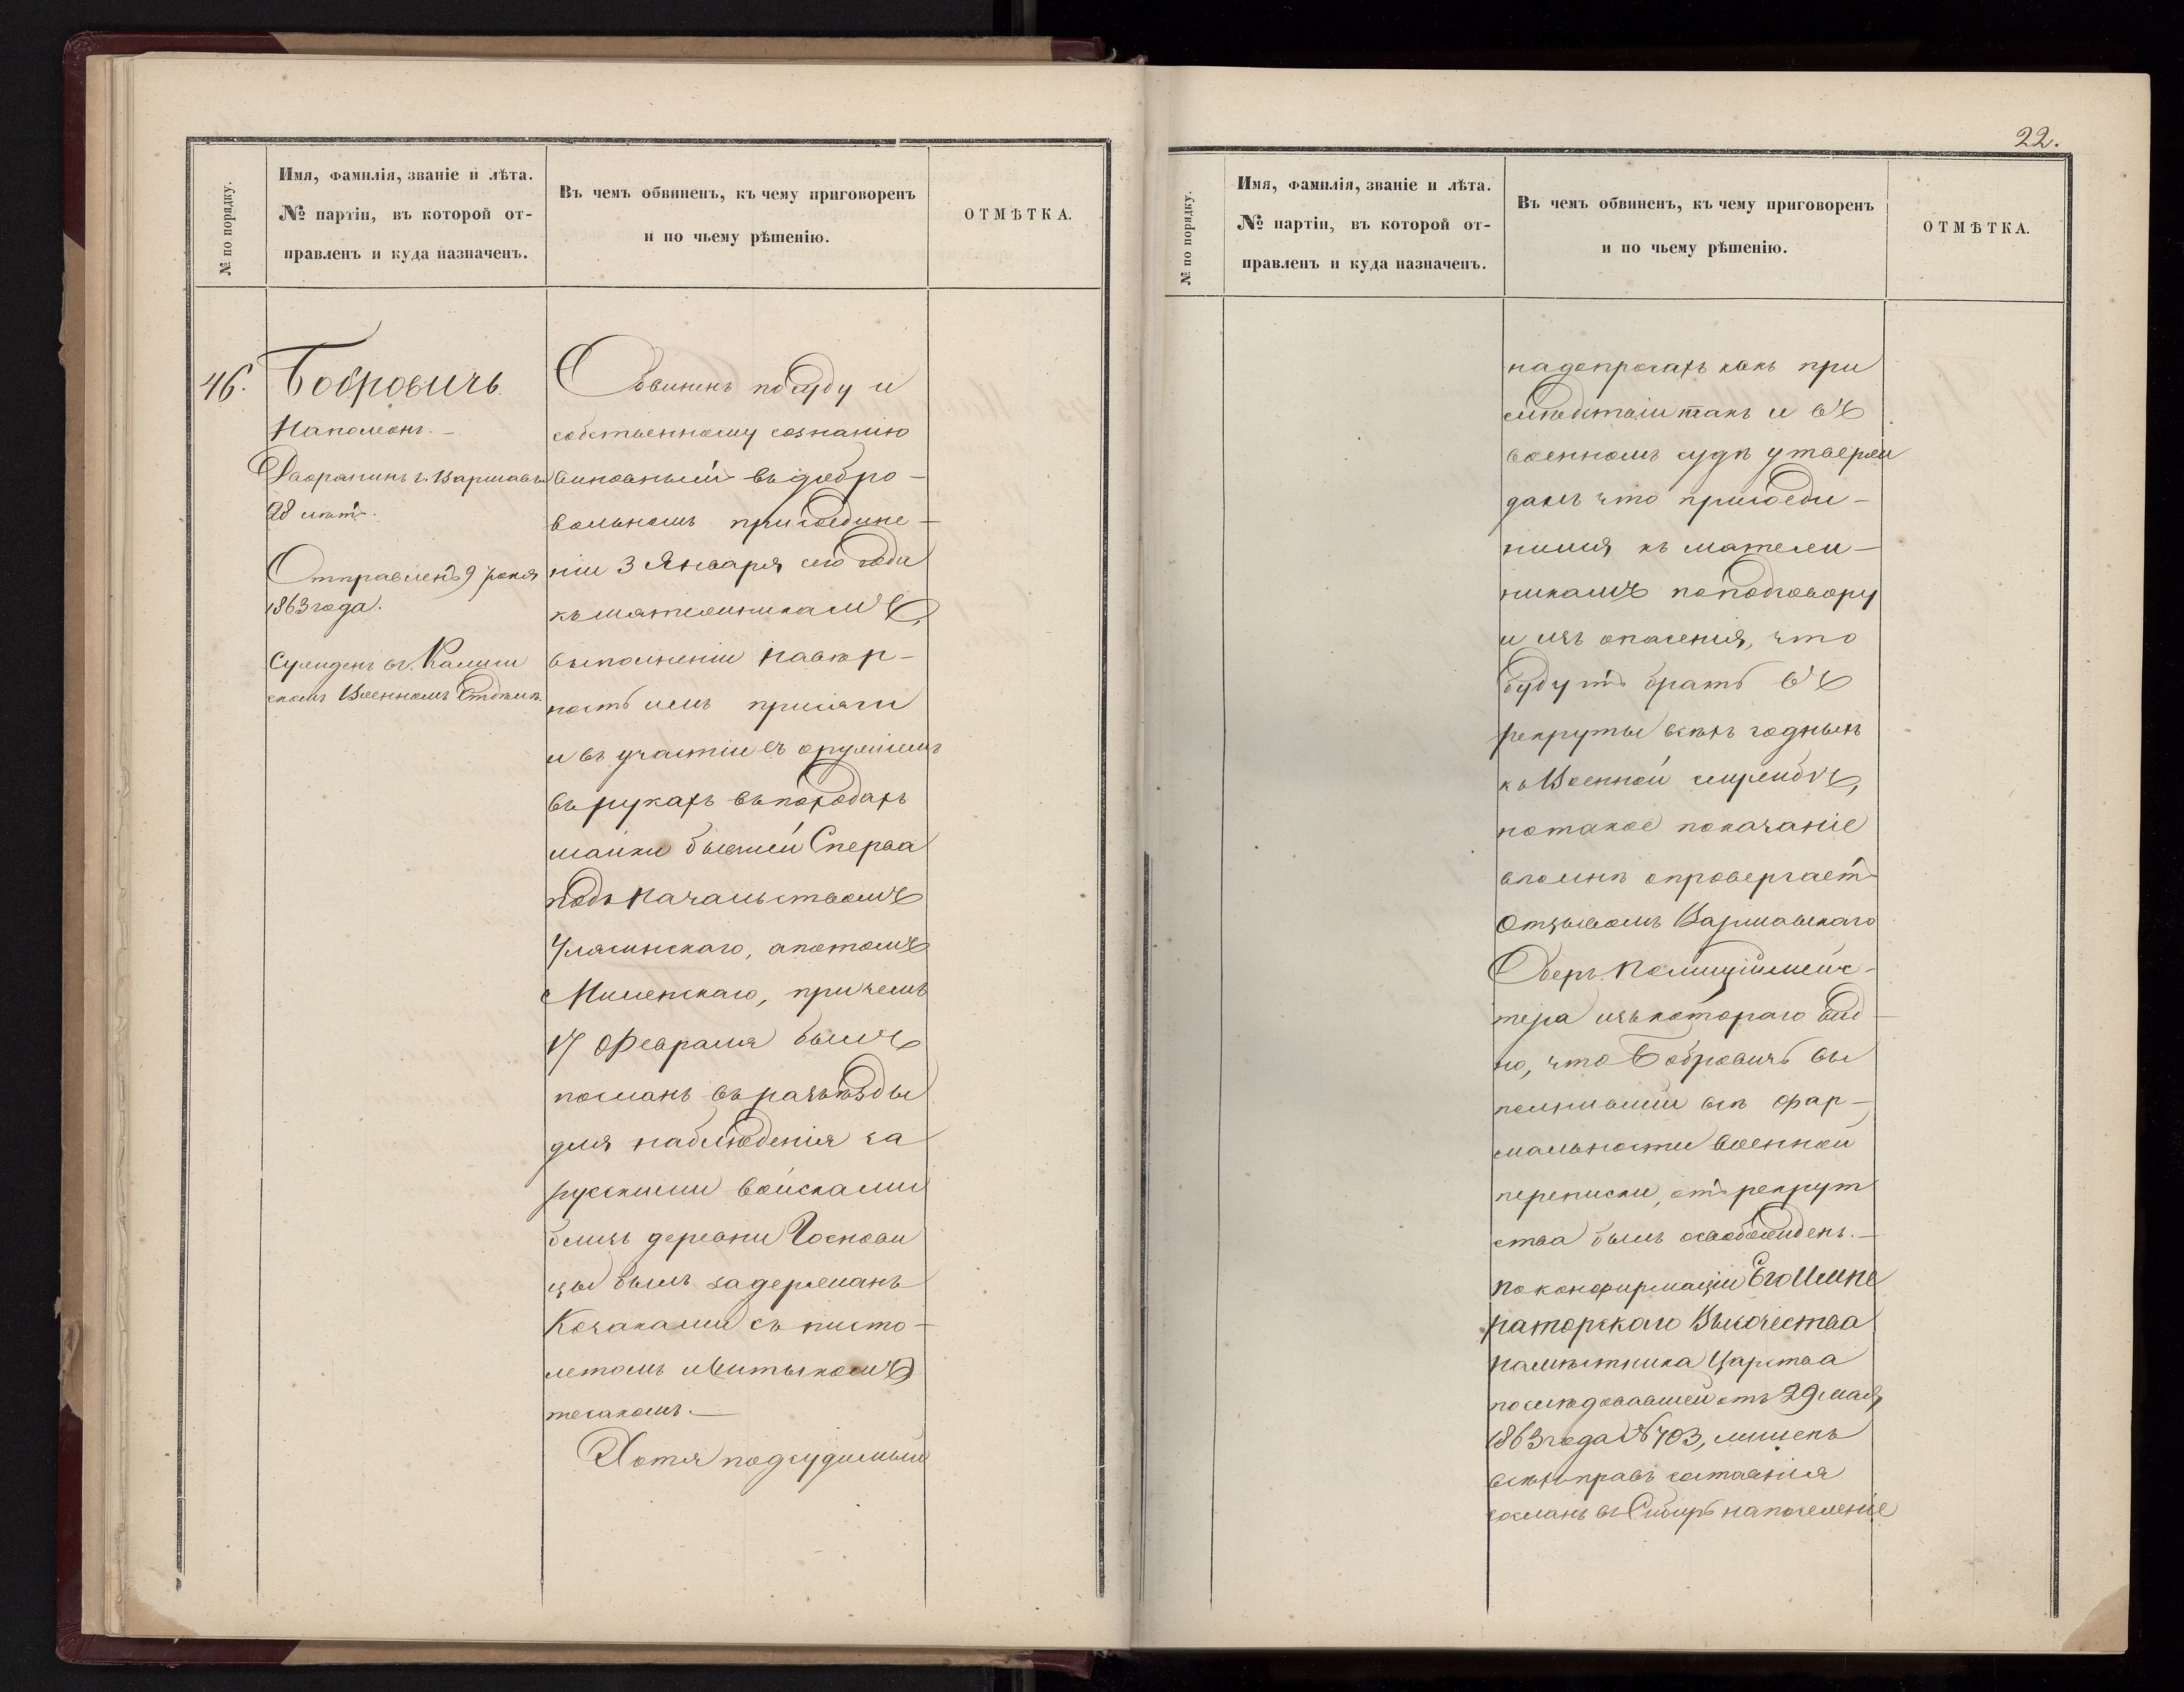 № по порядку.
Имя, фамилія, званіе и лѣта.
№ партіи, въ которой от-
правленъ и куда назначенъ.
Въ чемъ обвиненъ, къ чему приговоренъ
и по чьему рѣшенію.
ОТМѢТКА.
46.
Бобровичъ
Наполеонъ. –
Дворянинъ г. Варшавы
28 лѣтъ.
Отправленъ 9 Іюня
1863 года.
Сужденъ въ Калиш
скомъ Военномъ Отдѣлѣ.
Обвиненъ по суду и
собственному сознанію
виновный въ добро-
вольномъ присоедине-
ніи 3 Января сего года
къ мятежникамъ,
выполненіи на вѣр-
ность имъ присяги
и въ участіи съ оружіемъ
въ рукахъ въ походахъ
шайки бывшей сперва
подъ начальствомъ
Улясинскаго, а потомъ
Миленскаго, причемъ
17 Февраля былъ
посланъ въ разъѣзды
для наблюденія за
русскими войсками
близъ деревни
цы былъ задержанъ
Козаками съ писто-
летомъ и
тесакомъ. –
Хотя подсудимый
22.
№ по порядку.
Имя, фамилія, званіе и лѣта.
№ партіи, въ которой от-
правленъ и куда назначенъ.
Въ чемъ обвиненъ, къ чему приговоренъ
и по чьему рѣшенію.
ОТМѢТКА.
на допросахъ какъ при
слѣдствіи такъ и въ
военномъ судѣ утверж
далъ что присоеди-
нился къ мятеж-
никамъ по подговору
и изъ опасенія, что
будутъ брать въ
рекруты всѣхъ годныхъ
къ Военной службѣ,
но такое показаніе
вполнѣ опровергаетъ
отзывомъ Варшавскаго
Оберъ-Полиціймейс-
тера изъ котораго вид-
но, что Бобровичъ вы
полнивши всѣ фор-
мальности военной
переписки, отъ рекрут
ства былъ освобожденъ. –
По конфирмаціи Его Импе
раторскаго Высочества
Намѣстника Царства
послѣдовавшей отъ 29 мая
1863 года № 703, лишенъ
всѣхъ правъ состоянія
сосланъ въ Сибирь на поселеніе